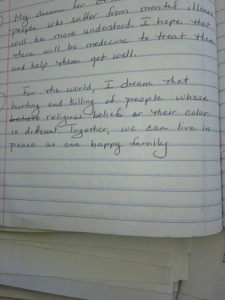 My dreams for
people who suffer from mental illness
will be more understood. I hope that
there will be medecine to treat them
and help them get well.
For the world, I dream that
hurting and killing of people whose
religious beliefs or their color
is different. Together, we can live in
peace as one happy family